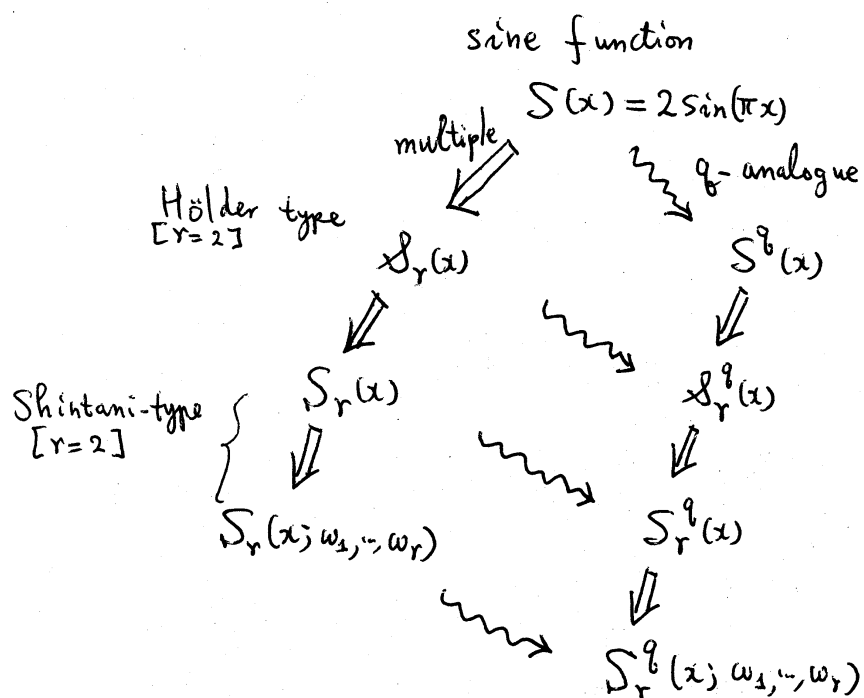 sine function
S(x) = 2 sin(πx)
multiple
q-analogue
Hölder type
[r=2]
𝒮_r(x)
S^q(x)
S_r(x)
𝒮_r^q(x)
Shintani-type
[r=2]
S_r(x; ω₁, ‥, ω_r)
S_r^q(x)
S_r^q(x; ω₁, ‥, ω_r)